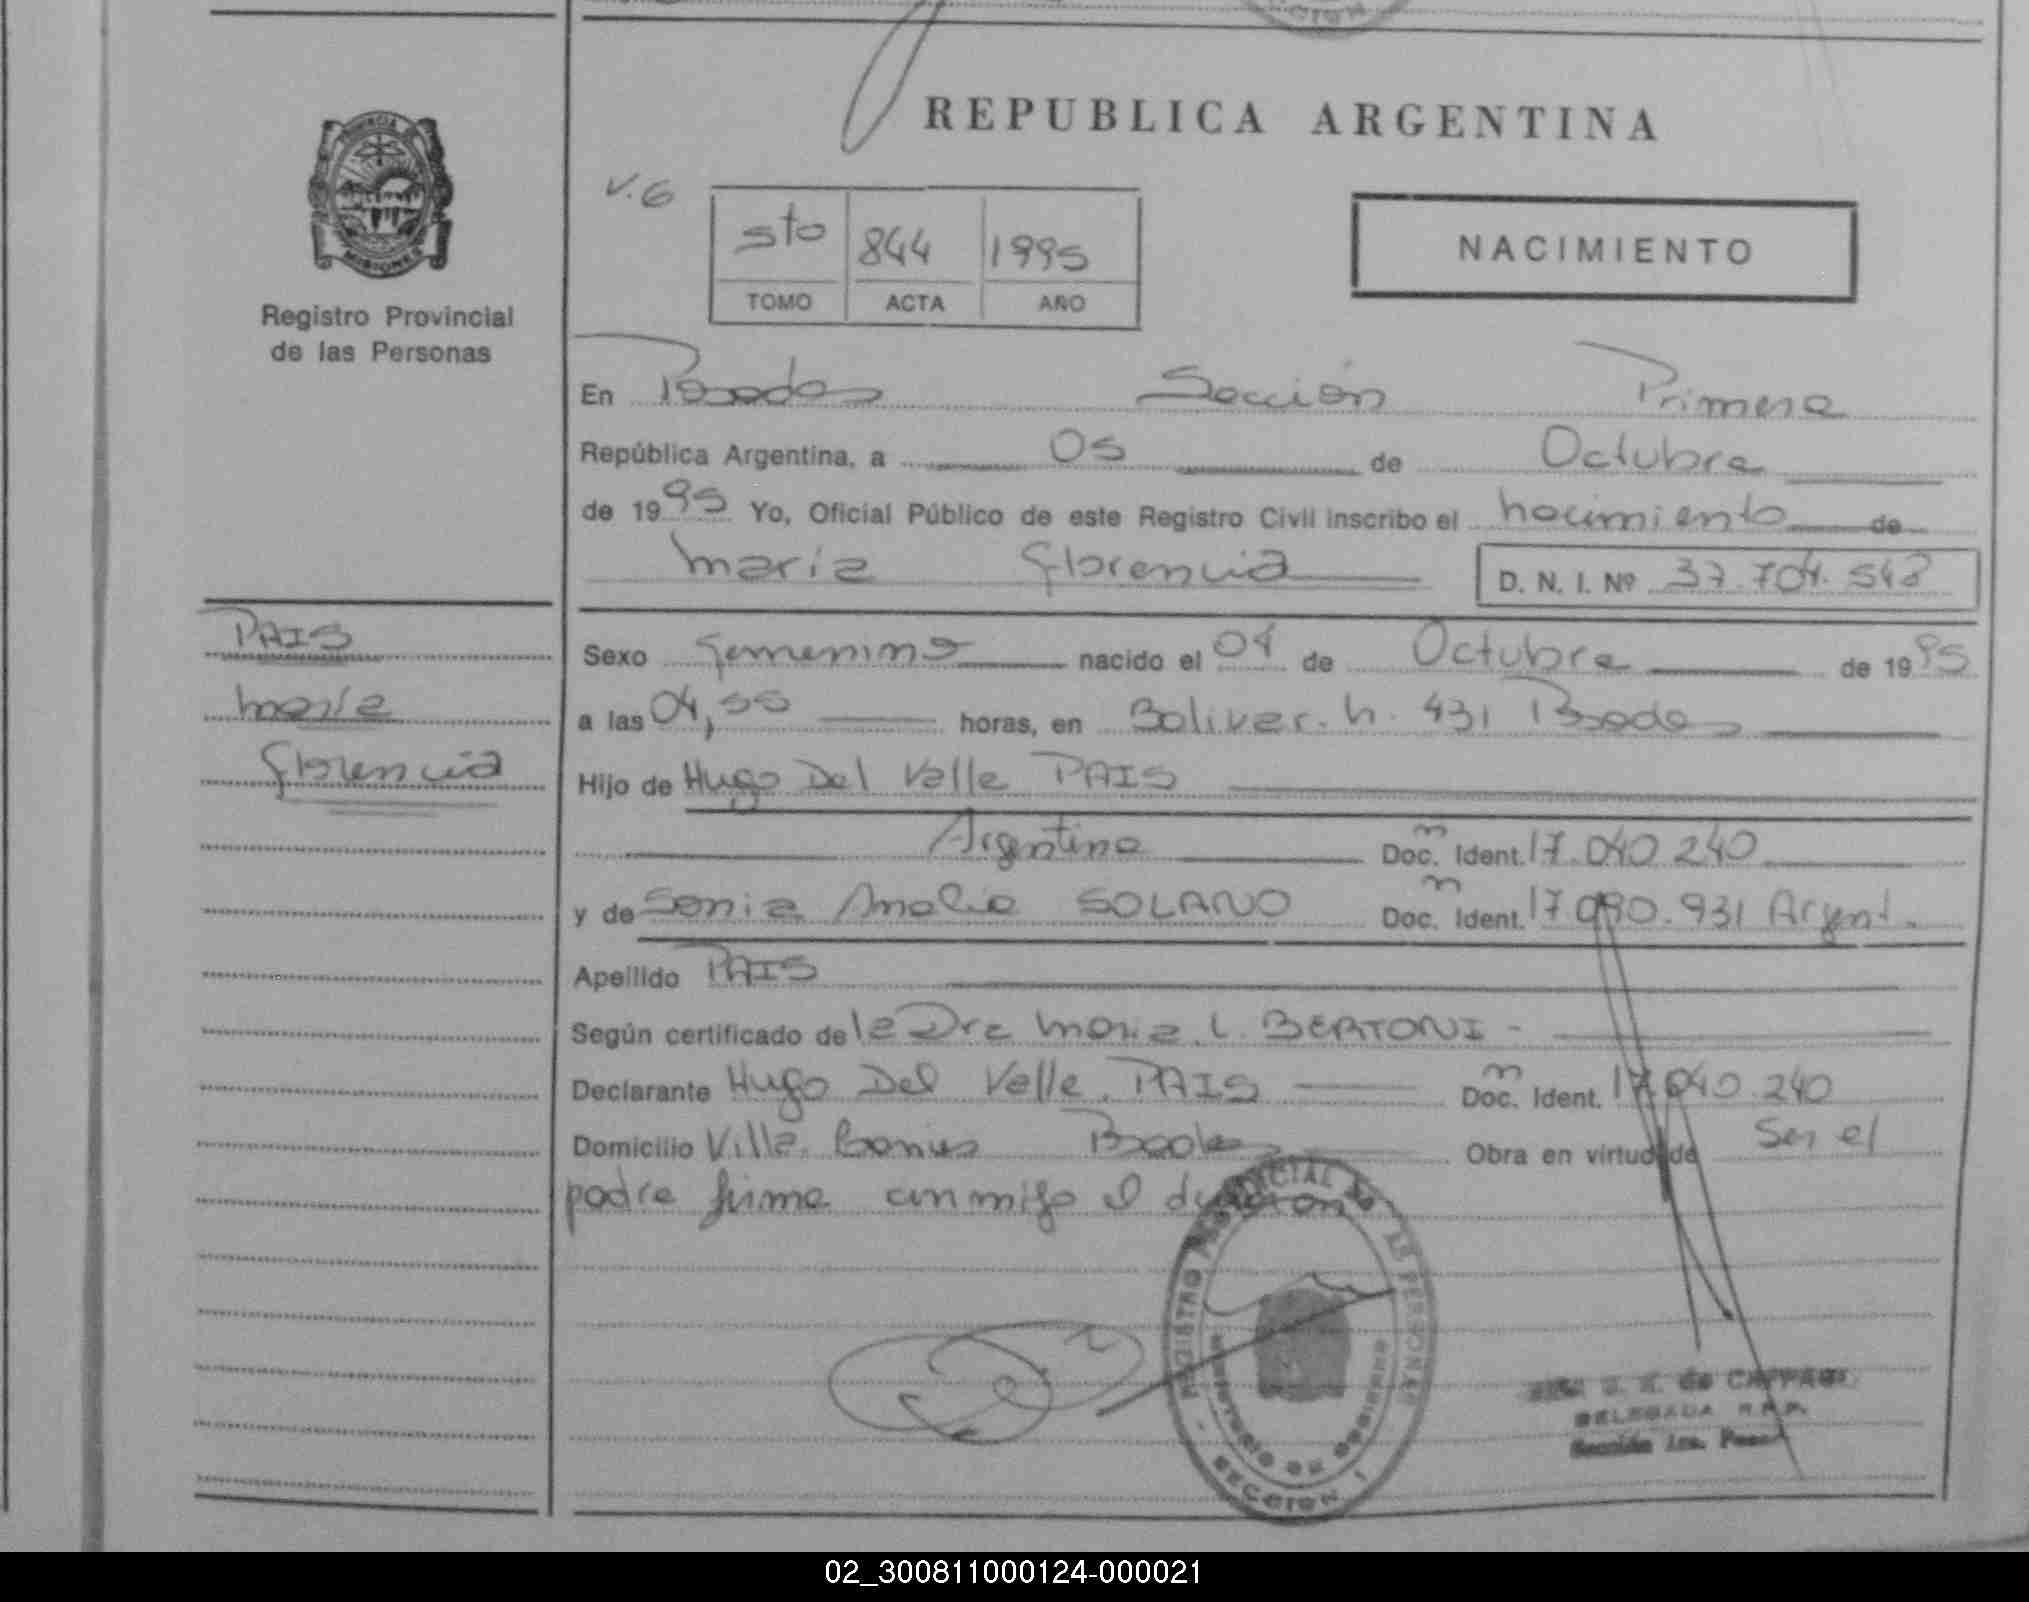 REPUBLICA ARGENTINA
PROVINCIA DE
MISIONES
Registro Provincial
de las Personas
V.6
5to 844 1995
TOMO ACTA AÑO
NACIMIENTO
En Posadas Sección Primera
República Argentina, a 05 de Octubre
de 1995 Yo, Oficial Público de este Registro Civil inscribo el nacimiento de
Maria Florencia D. N. I. Nº 37.704.543
PAIS
Maria
Florencia
Sexo femenino nacido el 04 de Octubre de 1995
a las 04,55 horas, en Bolivar. n. 431 Posadas
Hijo de Hugo Del Valle PAIS
Argentino Doc. Ident. 17.040.240
y de Sonia Amalia SOLANO Doc. Ident. 17.090.931 Argent.
Apellido PAIS
Según certificado de la Dra Maria L. BERTONI -
Declarante Hugo Del Valle PAIS Doc. Ident. 17.040.240
Domicilio Villa Posadas Obra en virtud de Ser el
padre firma conmigo el
REGISTRO PROVINCIAL DE LAS PERSONAS
MINISTERIO DE GOBIERNO
SECCION 1
de
DELEGADA R.P.P.
Sección 1ra.
SECCION
02_300811000124-000021